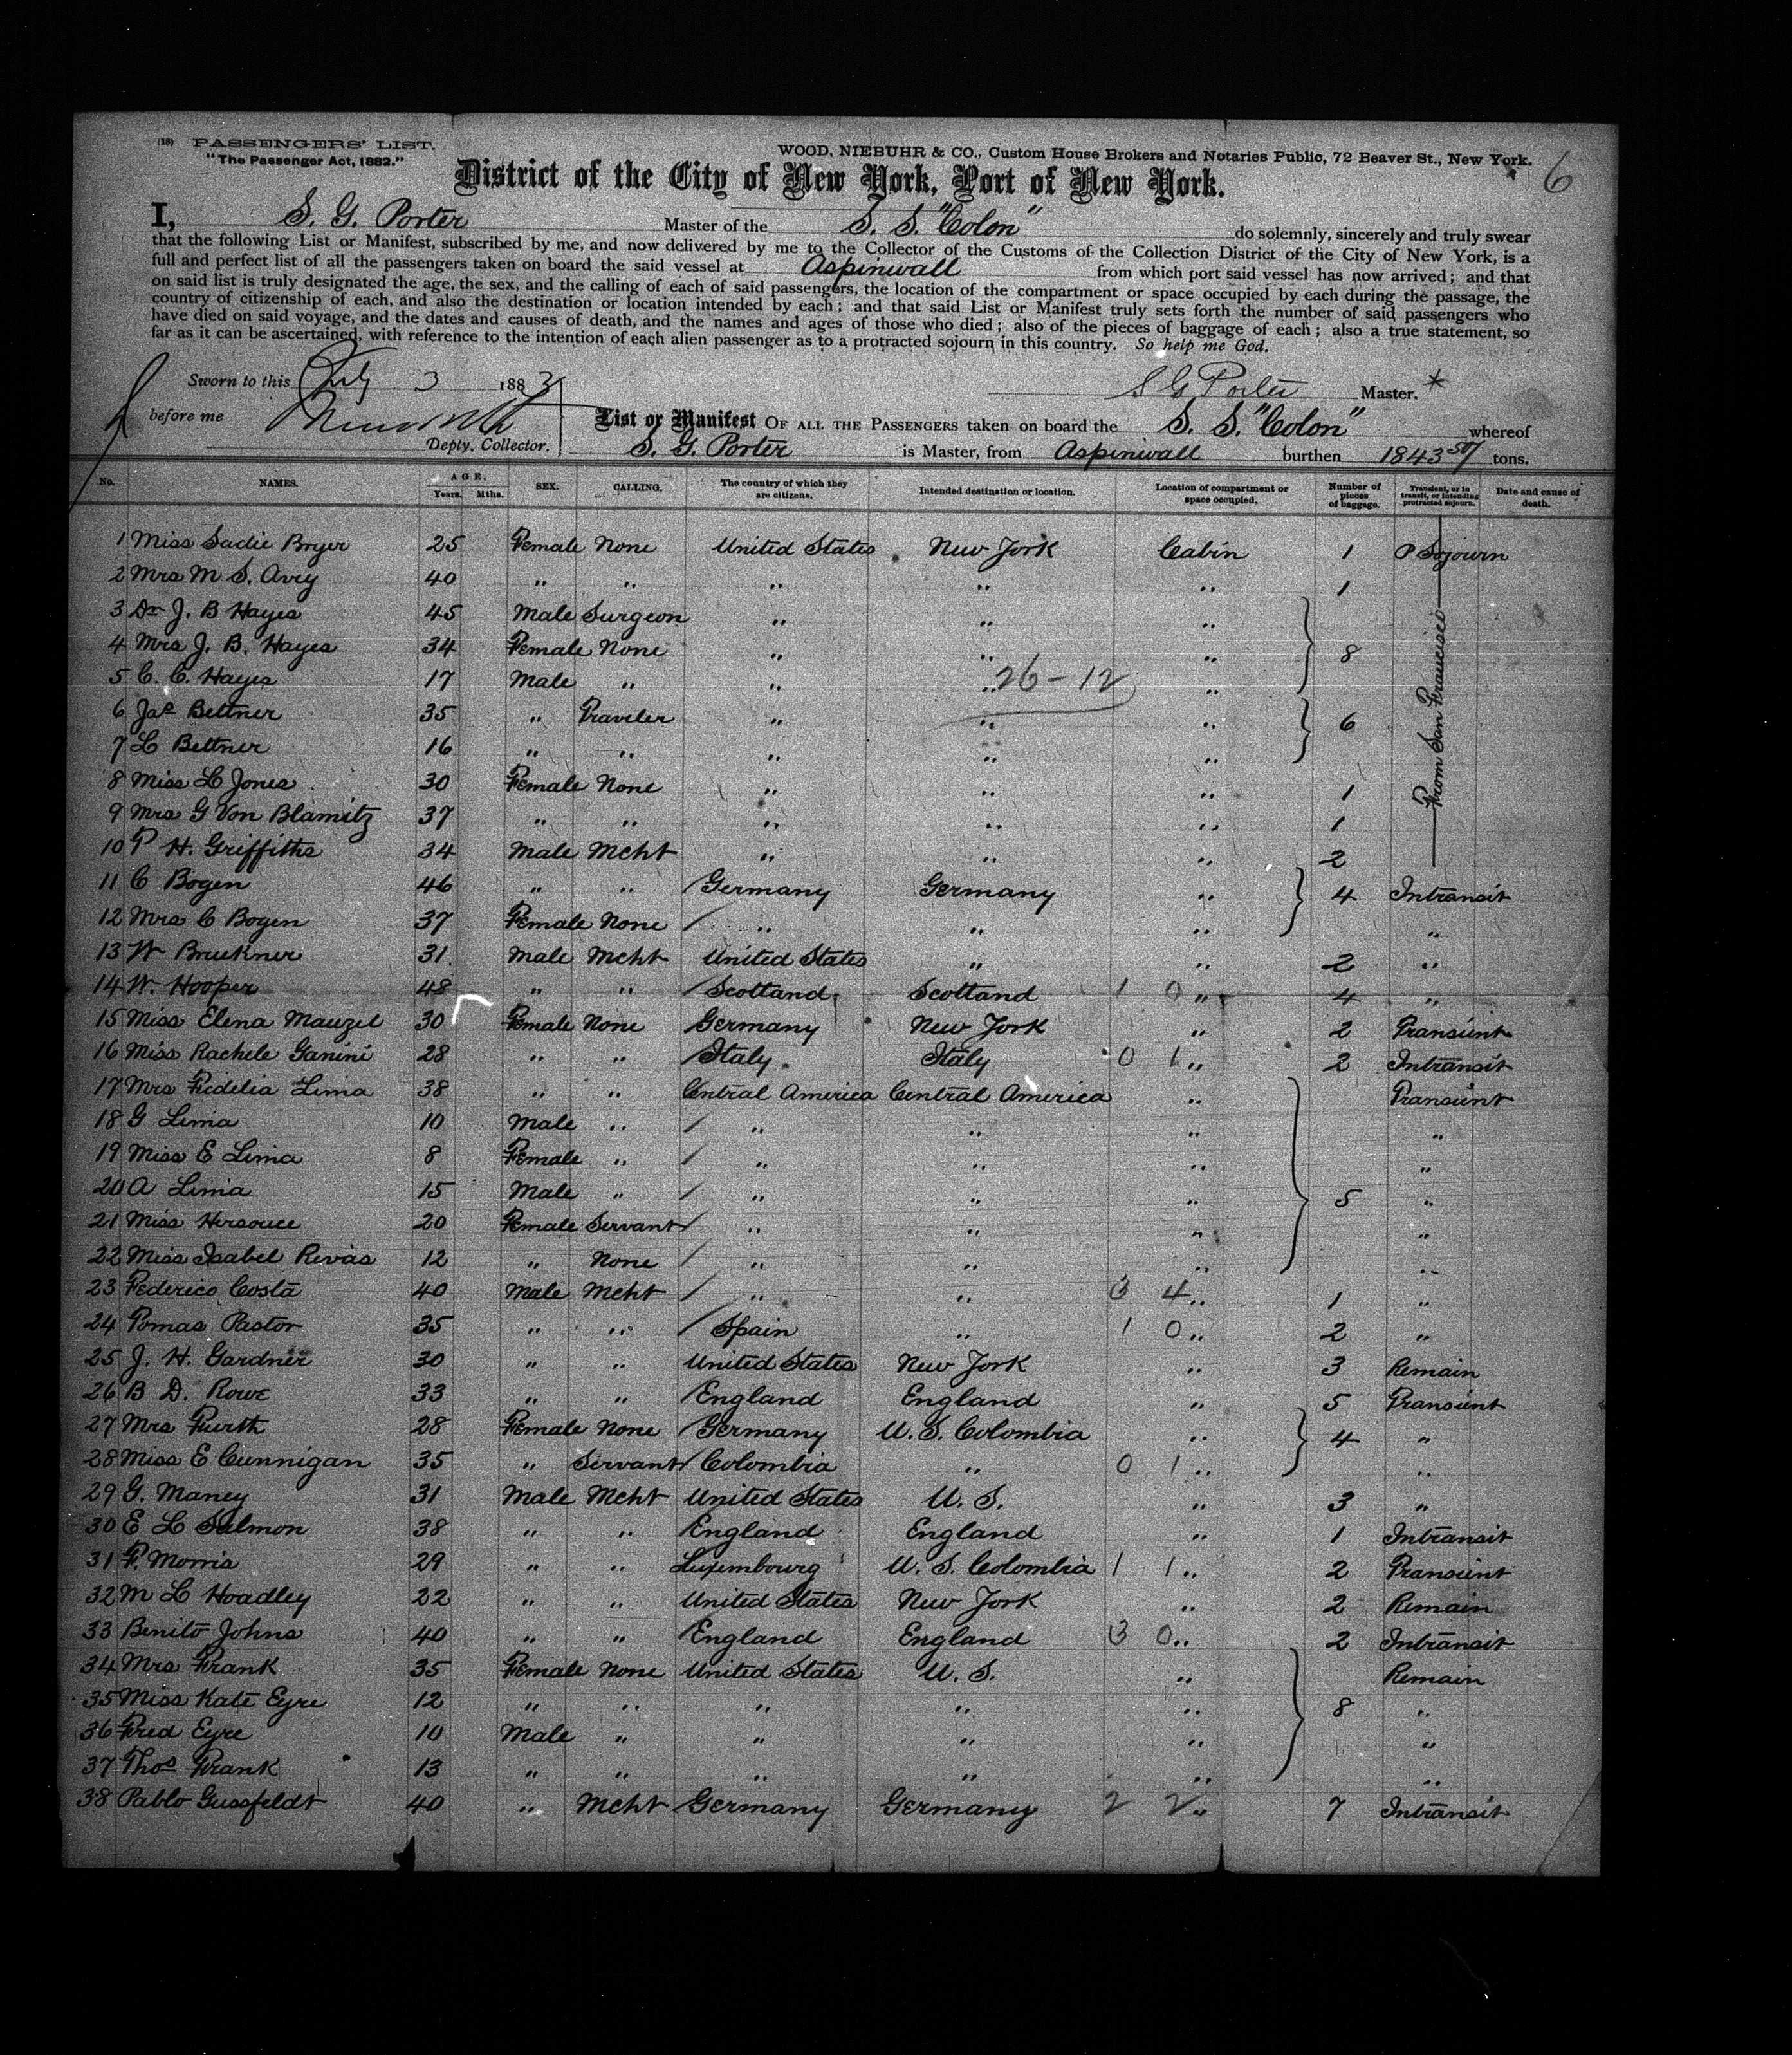 (18) PASSENGERS' LIST.
"The Passenger Act, 1882."
WOOD, NIEBUHR & CO., Custom House Brokers and Notaries Public, 72 Beaver St., New York.
6
District of the City of New York, Port of New York.
I, S. G. Porter Master of the S. S. "Colon" do solemnly, sincerely and truly swear
that the following List or Manifest, subscribed by me, and now delivered by me to the Collector of the Customs of the Collection District of the City of New York, is a
full and perfect list of all the passengers taken on board the said vessel at Aspinwall from which port said vessel has now arrived; and that
on said list is truly designated the age, the sex, and the calling of each of said passengers, the location of the compartment or space occupied by each during the passage, the
country of citizenship of each, and also the destination or location intended by each; and that said List or Manifest truly sets forth the number of said passengers who
have died on said voyage, and the dates and causes of death, and the names and ages of those who died; also of the pieces of baggage of each; also a true statement, so
far as it can be ascertained, with reference to the intention of each alien passenger as to a protracted sojourn in this country. So help me God.
Sworn to this July 3 1883
S G Porter Master. *
before me
Deply. Collector.
List or Manifest OF ALL THE PASSENGERS taken on board the S. S. "Colon" whereof
S. G. Porter is Master, from Aspinwall burthen 1843 50/ tons.
No. NAMES. AGE. Years. Mths. SEX. CALLING. The country of which they are citizens. Intended destination or location. Location of compartment or space occupied. Number of pieces of baggage. Transient, or in transit, or intending protracted sojourn. Date and cause of death.
1 Miss Sadie Bryer 25 Female None United States New York Cabin 1 P Sojourn
2 Mrs M S. Avry 40 " " " " " 1
3 Dr J. B Hayes 45 Male Surgeon " " "
4 Mrs J. B. Hayes 34 Female None " " " 8
5 C. C. Hayes 17 Male " " " 26-12 "
6 Jas Bettner 35 " Traveler " " " 6
7 L Bettner 16 " " " " "
From San Francisco
8 Miss L Jones 30 Female None " " " 1
9 Mrs G Von Blamitz 37 " " " " " 1
10 T H. Griffiths 34 Male Mcht " " " 2
11 C Bogen 46 " " Germany Germany " 4 Intransit
12 Mrs C Bogen 37 Female None / " " " "
13 W Bruckner 31 Male Mcht United States " " 2 "
14 W. Hooper 48 " " / Scotland Scotland 1 0 " 4 "
15 Miss Elena Mauzel 30 Female None / Germany New York " 2 Transient
16 Miss Rachele Ganini 28 " " / Italy Italy 0 1 " 2 Intransit
17 Mrs Fidelia Lima 38 " " Central America Central America " Transient
18 G Lima 10 Male " / " " " "
19 Miss E Lima 8 Female " / " " " "
20 A Lima 15 Male " / " " " 5 "
21 Miss 20 Female Servant / " " " "
22 Miss Isabel Rivas 12 " None / " " " "
23 Federico Costa 40 Male Mcht / " " 3 4 " 1 "
24 Tomas Pastor 35 " " / Spain " 1 0 " 2 "
25 J. H. Gardner 30 " " United States New York " 3 Remain
26 B D. Rowe 33 " " / England England " 5 Transient
27 Mrs Furth 28 Female None / Germany U. S. Colombia " 4 "
28 Miss E Cunnigan 35 " Servant / Colombia " 0 1 " "
29 G. Maney 31 Male Mcht United States U. S. " 3 "
30 E L Salmon 38 " " / England England " 1 Intransit
31 F. Morris 29 " " Luxembourg U. S. Colombia 1 1 " 2 Transient
32 M L Hoadley 22 " " United States New York " 2 Remain
33 Benito Johns 40 " " / England England 3 0 " 2 Intransit
34 Mrs Frank 35 Female None United States U. S. " Remain
35 Miss Kate Eyre 12 " " " " " 8 "
36 Fred Eyre 10 Male " " " " "
37 Thos Frank 13 " " " " " "
38 Pablo Gussfeldt 40 " Mcht / Germany Germany 2 2 " 7 Intransit